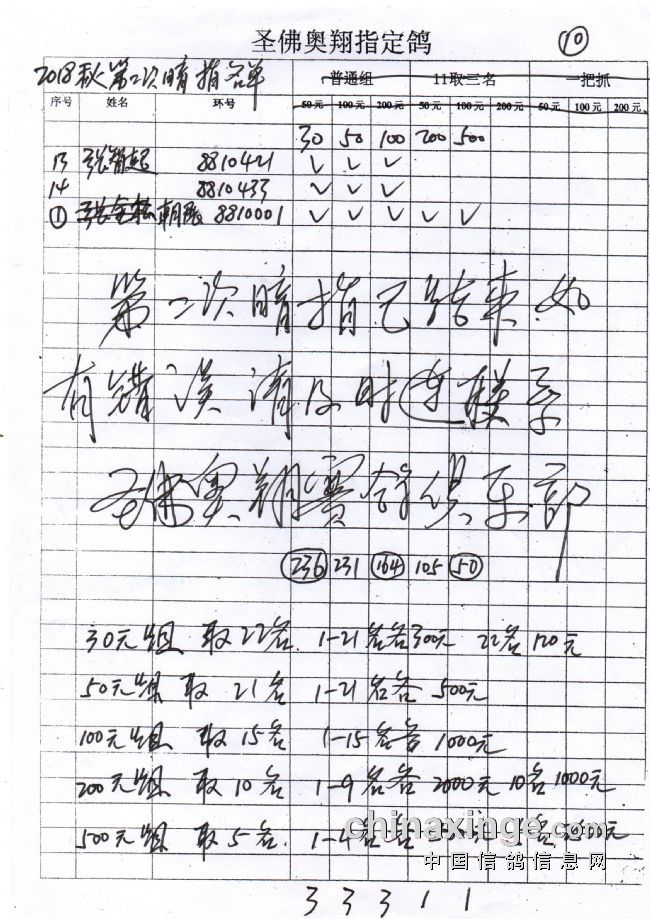 圣佛奥翔指定鸽 ⑩
2018秋第二次暗指名单 普通组 11取三名 一把抓
序号 姓名 环号 50元 100元 200元 50元 100元 200元 50元 100元 200元
30 50 100 200 500
13 8810421 ✓ ✓ ✓
14 8810433 ✓ ✓ ✓
① 8810001 ✓ ✓ ✓ ✓ ✓
第二次暗指已结束 如
有错误请及时连系
圣佛奥翔赛鸽俱乐部
236 231 164 105 50
30元组 取22名. 1-21名各300元 22名 120元
50元组 取21名 1-21名各 500元
100元组 取15名 1-15名各 1000元
200元组 取10名 1-9名各 2000元 10名 1000元
500元组 取5名. 1-4名各
chinaxinge.com
中国信鸽信息网
3 3 3 1 1